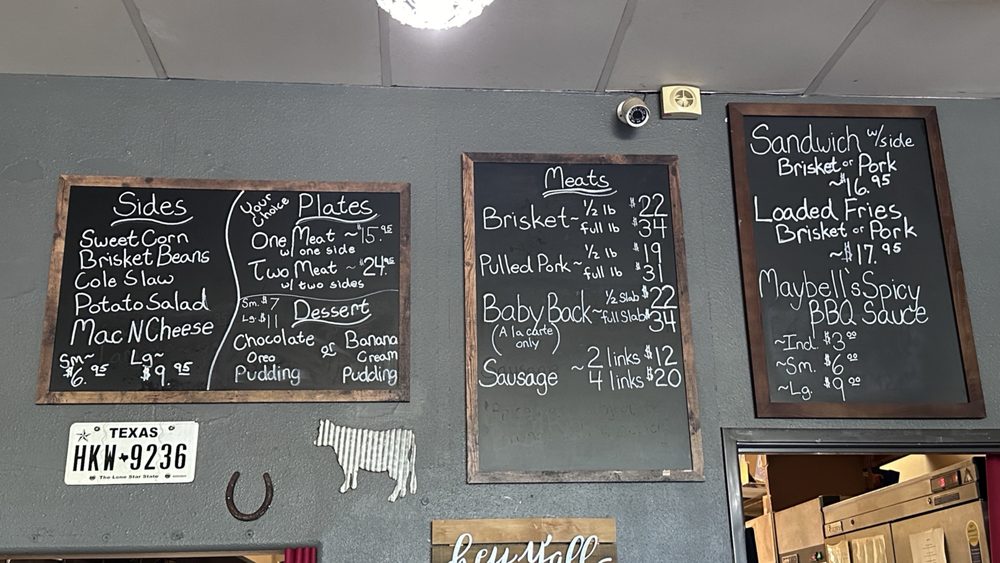 Sides
Sweet Corn
Brisket Beans
Cole Slaw
Potato Salad
Mac N Cheese
Sm~ Lg~
$6.95 $9.95
Your Choice Plates
One Meat ~ $15.95
w/ one side
Two Meat ~ $24.95
w/ two sides
Sm. $7
Lg. $11
Dessert
Chocolate or Banana
Oreo Cream
Pudding Pudding
Meats
Brisket ~ 1/2 lb $22
full lb $34
Pulled Pork ~ 1/2 lb $19
full lb $31
Baby Back ~ 1/2 Slab $22
full Slab $34
(A la carte only)
Sausage ~ 2 links $12
4 links $20
Sandwich w/side
Brisket or Pork
~$16.95
Loaded Fries
Brisket or Pork
~$17.95
Maybell's Spicy
BBQ Sauce
~Ind. $3.00
~Sm. $6.00
~Lg. $9.00
TEXAS
HKW 9236
The Lone Star State
hey y'all